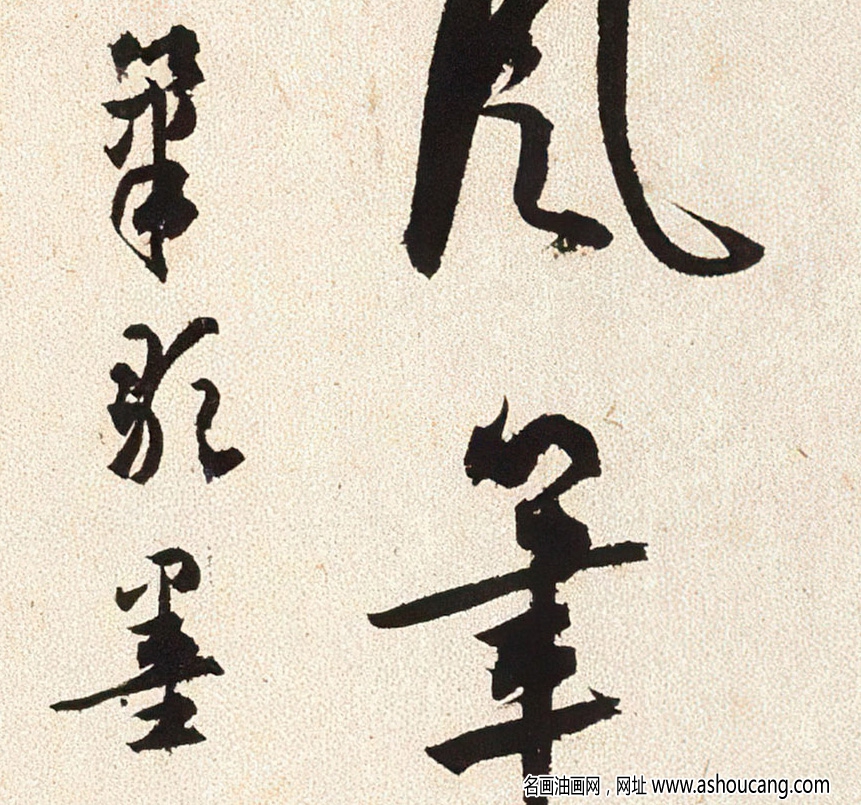 风筆
筆墨
名画油画网，网址 www.ashoucang.com